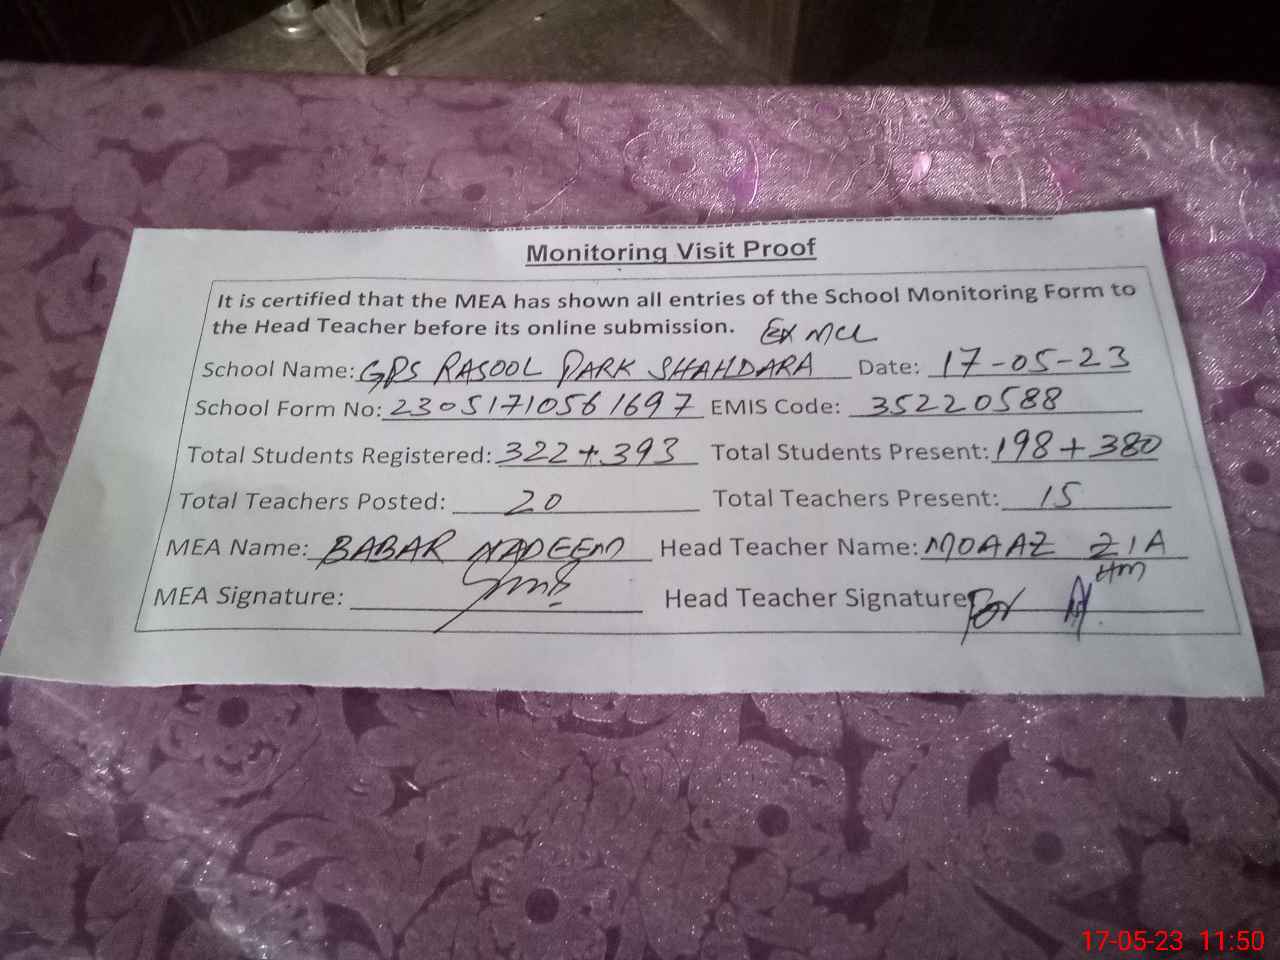 Monitoring Visit Proof
It is certified that the MEA has shown all entries of the School Monitoring Form to
the Head Teacher before its online submission. Ex MCL
School Name: GPS RASOOL PARK SHAHDARA Date: 17-05-23
School Form No: 23051710561697 EMIS Code: 35220588
Total Students Registered: 322+393 Total Students Present: 198+380
Total Teachers Posted: 20 Total Teachers Present: 15
MEA Name: BABAR NADEEM Head Teacher Name: MOAAZ ZIA
HM
MEA Signature: Head Teacher Signature For
17-05-23 11:50